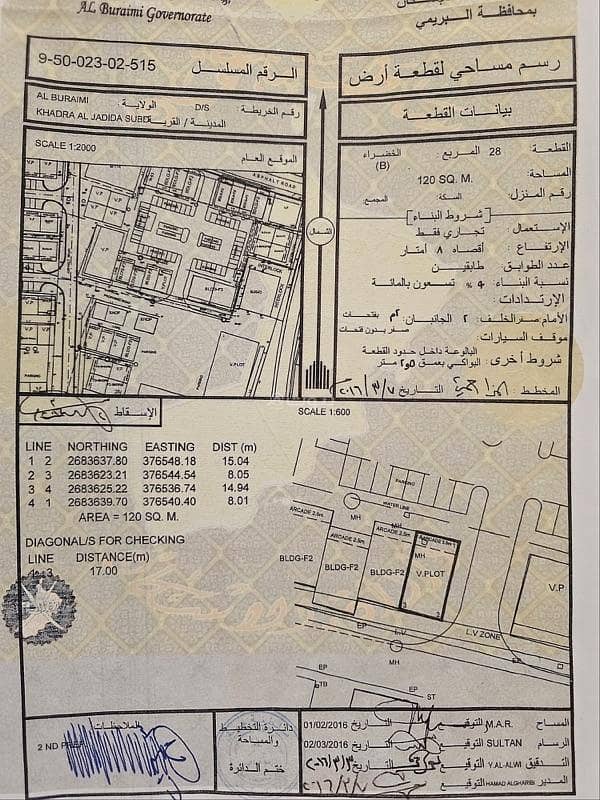 AL Buraimi Governorate
بمحافظة البريمي
رسم مساحي لقطعة أرض
الرقم المسلسل 9-50-023-02-515
بيانات القطعة
رقم الخريطة D/S الولاية: AL BURAIMI
المدينة / القرية: KHADRA AL JADIDA SUBD
SCALE 1:2000 الموقع العام
القطعة: 28 المربع الخضراء (B)
المساحة: 120 SQ. M.
رقم المنزل: السكة: المجمع:
شروط البناء
الإستعمال: تجاري فقط
الإرتفاع: أقصاه ٨ أمتار
عدد الطوابق: طابقين
نسبة البناء: تسعون بالمائة
الإرتدادات:
الأمام: صفر الخلف: ٢ الجانبان: ٢م بفتحات
صفر بدون فتحات
موقف السيارات:
شروط أخرى: البالوعة داخل حدود القطعة
البواكي بعمق ٢٫٥ متر
المخطط التاريخ ٢٠١٦/٣/٧
الشمال
ASPHALT ROAD
INTERLOCK
PARKING
SHOP
V.PLOT
BLDG-F2
الإسقاط
SCALE 1:600
LINE NORTHING EASTING DIST (m)
1 2 2683637.80 376548.18 15.04
2 3 2683623.21 376544.54 8.05
3 4 2683625.22 376536.74 14.94
4 1 2683639.70 376540.40 8.01
AREA = 120 SQ. M.
DIAGONAL/S FOR CHECKING
LINE DISTANCE(m)
1 3 17.00
PARKING
WATER LINE
MH
ARCADE 2.5m
ARCADE 2.5m
ARCADE 2.5m
ARCADE 2.5m
MH
BLDG-F2
BLDG-F2
BLDG-F2
V.PLOT
V.P
EP
L.V
L.V ZONE
EP
MH
EP
TB
EP
ST
المساح M.A.R. التوقيع التاريخ 01/02/2016
الرسام SULTAN التوقيع التاريخ 02/03/2016
التدقيق Y.AL-ALWI التوقيع التاريخ ٢٠١٦/٣/٣
المدير HAMAD ALGHARIBI التوقيع التاريخ
دائرة التخطيط
والمساحة
ختم الدائرة
الملاحظات
2 ND